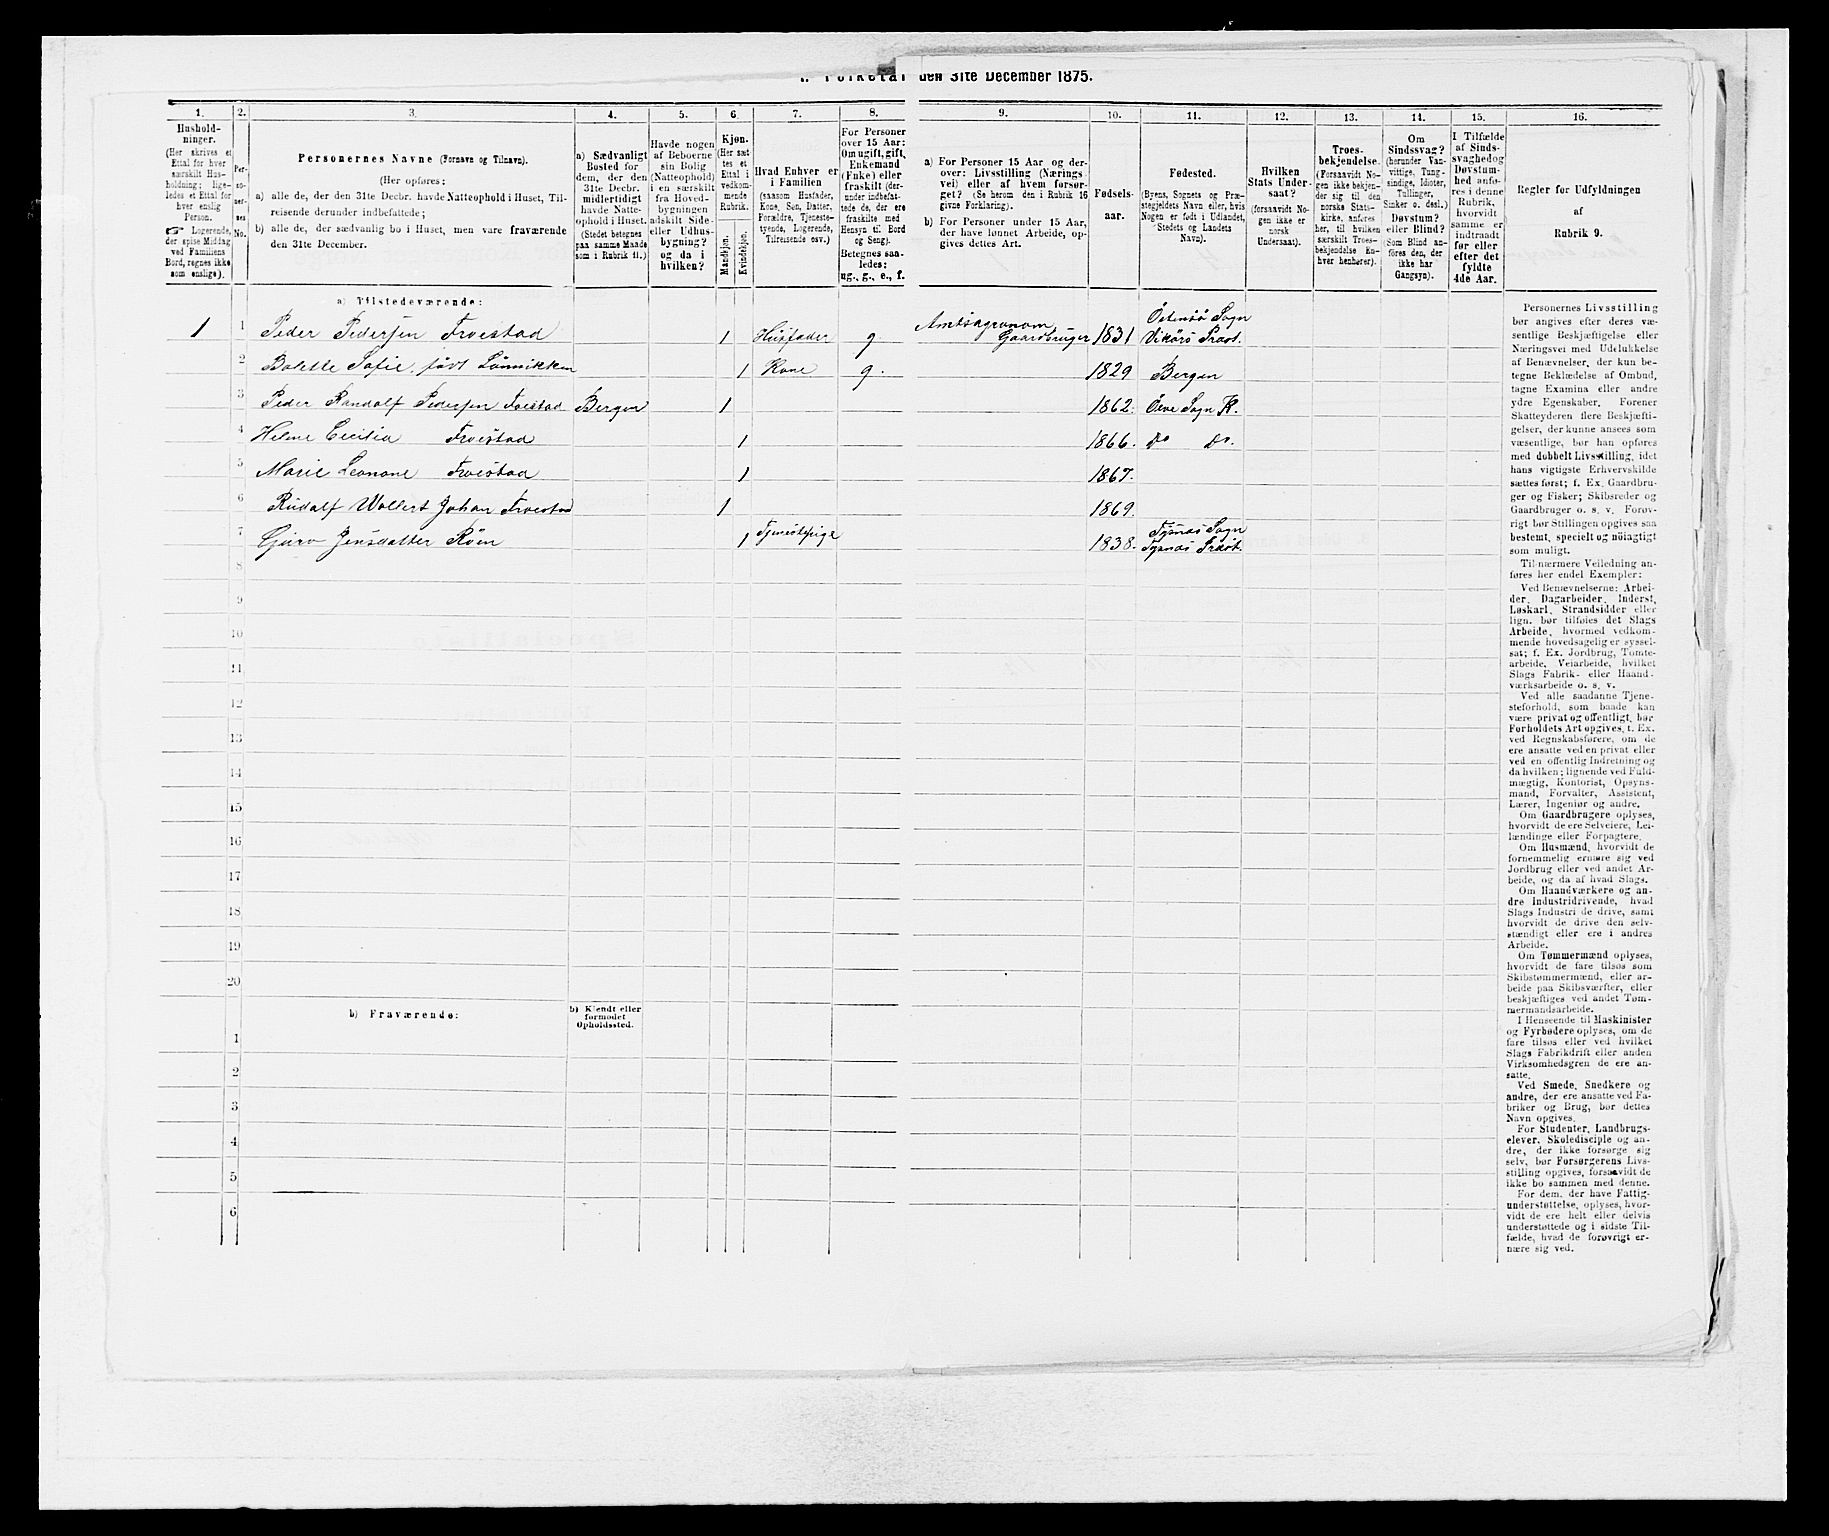 I. Folketal den 31te December 1875.
1.
2.
3.
4.
5.
6.
7.
8.
9.
10.
11.
12.
13.
14.
15.
16.
Hushold-
ninger.
(Her skrives et
Ettal for hver
særskilt Hus-
holdning; lige-
ledes et Ettal for
hver enslig
Person.
☞ Logerende,
der spise Middag
ved Familiens
Bord, regnes ikke
som enslige).
Per-
so-
ner-
nes
No.
Personernes Navne (Fornavn og Tilnavn).
(Her opføres:
a) alle de, der den 31te Decbr. havde Natteophold i Huset, Til-
reisende derunder indbefattede;
b) alle de, der sædvanlig bo i Huset, men vare fraværende
den 31te December.
a) Sædvanligt
Bosted for
dem, der den
31te Decbr.
midlertidigt
havde Natte-
ophold i Huset.
(Stedet betegnes
paa samme Maade
som i Rubrik 11.)
Havde nogen
af Beboerne
sin Bolig
(Natteophold)
i en særskilt
fra Hoved-
bygningen
adskilt Side-
eller Udhus-
bygning?
og da i
hvilken?
Kjøn.
(Her sættes
et
Ettal i
vedkom-
mende
Rubrik.
Mandkjøn.
Kvindekjøn.
Hvad Enhver er
i Familien
(saasom Husfader,
Kone, Søn, Datter,
Forældre, Tjeneste-
tyende, Logerende,
Tilreisende osv.)
For Personer
over 15 Aar:
Om ugift, gift,
Enkemand
(Enke) eller
fraskilt (der-
under indbefat-
tede de, der ere
fraskilte med
Hensyn til Bord
og Seng).
Betegnes saa-
ledes:
ug., g., e., f.
a) For Personer 15 Aar og der-
over: Livsstilling (Nærings
vei) eller af hvem forsør-
get? (Se herom den i Rubrik 16
givne Forklaring).
b) For Personer under 15 Aar,
der have lønnet Arbeide, op-
gives dettes Art.
Fødsels-
aar.
Fødested.
(Byens, Sognets og Præ-
stegjeldets Navn eller, hvis
Nogen er født i Udlandet,
Stedets og Landets
Navn).
Hvilken
Stats Under-
saat?
(forsaavidt No-
gen ikke er
norsk
Undersaat).
Troes-
bekjendelse.
(Forsaavidt No-
gen ikke bekjen-
der sig til den
norske Stats-
kirke, anføres
her, til hvilken
særskilt Troes-
bekjendelse En-
hver henhører).
Om
Sindssvag?
(herunder Van-
vittige, Tung-
sindige, Idioter,
Tullinger,
Sinker o. desl.)
Døvstum?
eller Blind?
(Som Blind an-
føres den, der
ikke har
Gangsyn).
I Tilfælde
af Sinds-
svaghed og
Døvstum-
hed anfø-
res i denne
Rubrik,
hvorvidt
samme er
indtraadt
før eller
efter det
fyldte
4de Aar.
Regler for Udfyldningen
af
Rubrik 9.
a) Tilstedeværende:
1 1 Peder Pedersen Troestad 1 Husfader g Amtsagronom Gaardbruger 1831 Östensö Sogn Vikörs Præst.
2 Bolette Sofie, født Lönnikken 1 Kone g. 1829 Bergen
3 Peder Randolf Pedersen Troestad Bergen 1 1862. Öeve Sogn K.
4 Helene Cecilia Troestad 1 1866. Do Do.
5 Marie Leonone Troestad 1 1867.
6 Rudolf Wollert Johan Troestad 1 1869.
7 Guro Jensdatter Röen 1 Tjenestepige 1838. Tysnæs Sogn Tysnæs Præst.
8
9
10
11
12
13
14
15
16
17
18
19
20
b) Fraværende:
b) Kjendt eller
formodet
Opholdssted.
1
2
3
4
5
6
Personernes Livsstilling
bør angives efter deres væ-
sentlige Beskjæftigelse eller
Næringsvei med Udelukkelse
af Benævnelser, der kun be-
tegne Beklædelse af Ombud,
tagne Examina eller andre
ydre Egenskaber. Forener
Skatteyderen flere Beskjæfti-
gelser, der kunne ansees som
væsentlige, bør han opføres
med dobbelt Livsstilling, idet
hans vigtigste Erhvervskilde
sættes først; f. Ex. Gaardbru-
ger og Fisker; Skibsreder og
Gaardbruger o. s. v. Forøv-
rigt bør Stillingen opgives saa
bestemt, specielt og nöiagtigt
som muligt.
Til nærmere Veiledning an-
føres her endel Exempler:
Ved Benævnelserne: Arbei-
der, Dagarbeider, Inderst,
Løskarl, Strandsidder eller
lign. bør tilføies det Slags
Arbeide, hvormed vedkom-
mende hovedsagelig er syssel-
sat; f. Ex. Jordbrug, Tomte-
arbeide, Veiarbeide, hvilket
Slags Fabrik- eller Haand-
værksarbeide o. s. v.
Ved alle saadanne Tjene-
steforhold, som baade kan
være privat og offentligt, bør
Forholdets Art opgives, f. Ex.
ved Regnskabsførere, om de
ere ansatte ved en privat eller
ved en offentlig Indretning og
da hvilken; lignende ved Fuld-
mægtig, Kontorist, Opsyns-
mand, Forvalter, Assistent,
Lærer, Ingeniør og andre.
Om Gaardbrugere oplyses,
hvorvidt de ere Selveiere, Lei-
lændinge eller Forpagtere.
Om Husmænd, hvorvidt de
fornemmelig ernære sig ved
Jordbrug eller ved andet Ar-
beide, og da af hvad Slags.
Om Haandværkere og an-
dre Industridrivende, hvad
Slags Industri de drive, samt
hvorvidt de drive den selv-
stændigt eller ere i andres
Arbeide.
Om Tømmermænd oplyses,
hvorvidt de fare tilsøs som
Skibstømmermænd, eller ar-
beide paa Skibsværfter, eller
beskjæftiges ved andet Tøm-
mermandsarbeide.
I Henseende til Maskinister
og Fyrbødere oplyses, om de
fare tilsøs eller ved hvilket
Slags Fabrikdrift eller anden
Virksomhedsgren de ere an-
satte.
Ved Smede, Snedkere og
andre, der ere ansatte ved Fa-
briker og Brug, bør dettes
Navn opgives.
For Studenter, Landbrugs-
elever, Skoledisciple og an-
dre, der ikke forsørge sig
selv, bør Forsørgerens Livs-
stilling opgives, forsaavidt de
ikke bo sammen med denne.
For dem, der have Fattig-
understøttelse, oplyses, hvor-
vidt de ere helt eller delvis
understøttede og i sidste Til-
fælde, hvad de forøvrigt er-
nære sig ved.